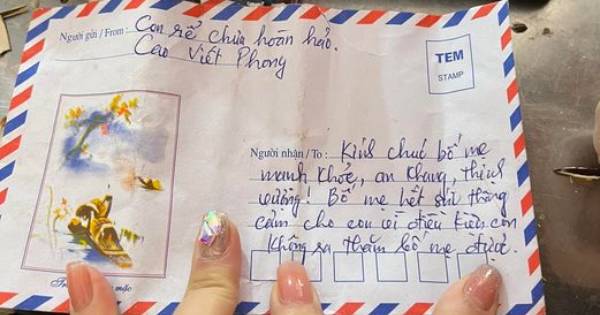 Người gửi / From : Con rể chưa hoàn hảo.
Cao Viết Phong
TEM
STAMP
Người nhận / To : Kính chúc bố mẹ
mạnh khỏe, an khang, thịnh
vượng! Bố mẹ hết sức thông
cảm cho con vì điều kiện con
không ra thăm bố mẹ được.
mặc